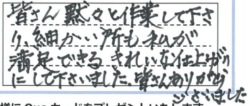 皆さん黙々と作業して下さ
り、細かい所も私が
満足できるきれいな仕上がり
にして下さいました。皆さんありがとう
ございました